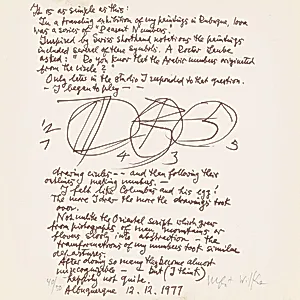 It is as simple as this:
In a traveling exhibition of my paintings in Dubuque, Iowa
was a series of "Peasant Numbers."
Inspired by Swiss shorthand notations the paintings
included several of these symbols. A Doctor
asked: "Do you know that the Arabic numbers originated
from the circle?"
Only later in the studio I responded to that question.
I began to play —
1
2
3
4
5
drawing circles — and then following their
outlines / making numbers. —
I felt like Columbus and his egg!
The more I drew the more the drawings took
over.
Not unlike the Oriental script which grew
from pictographs of men, mountains or
flowers slowly into abstraction — the
transformations of my numbers took similar
departures.
After doing so many they become almost
unrecognizable — but (I think)
not quite.
Albuquerque 12.12.1977